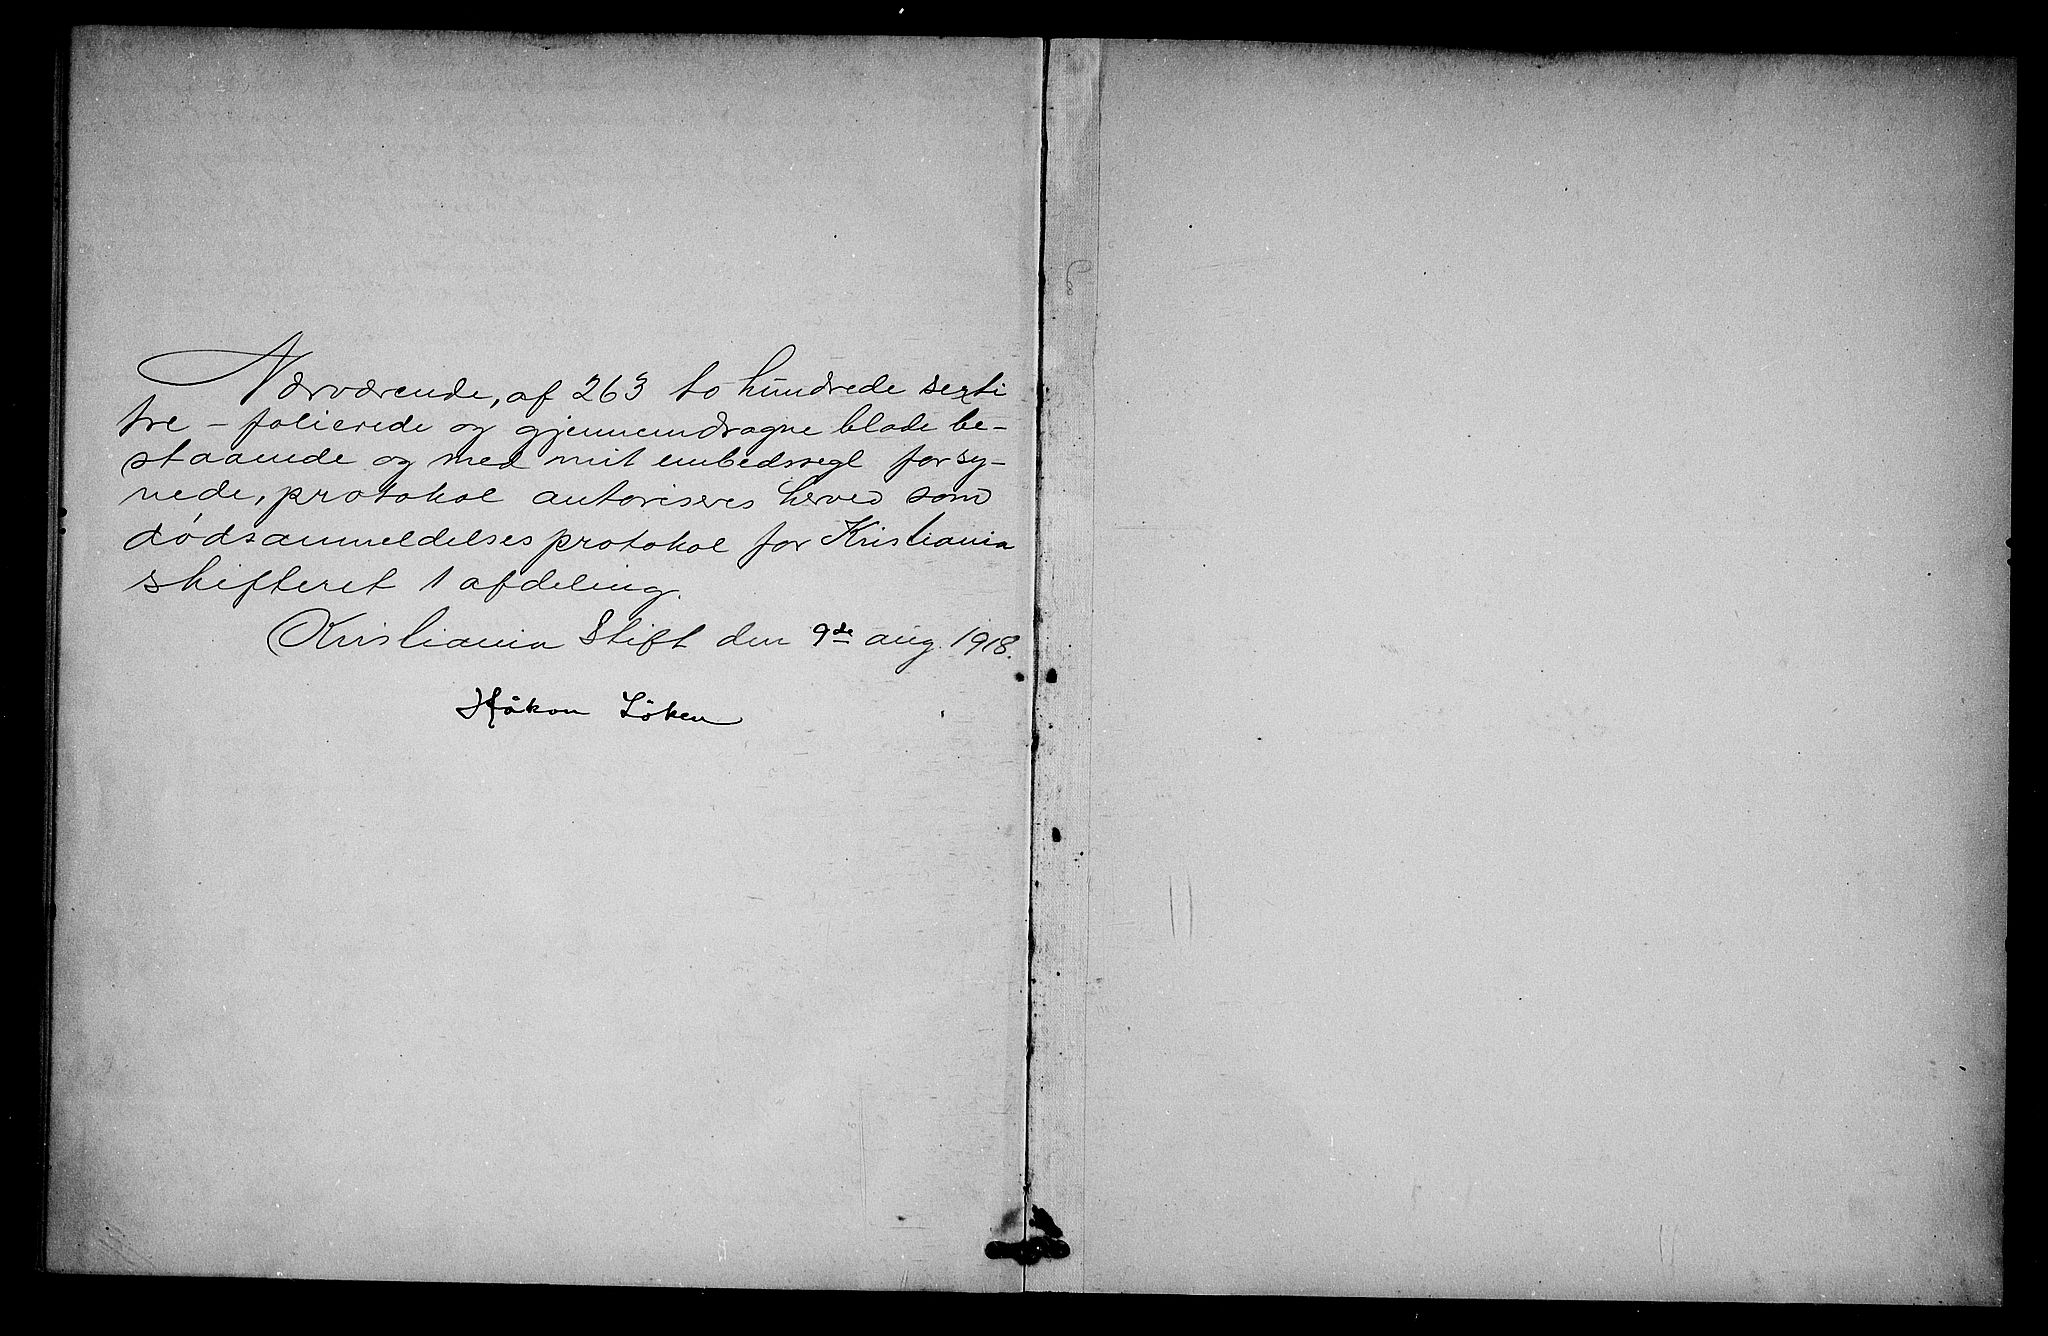 Nærværende, af 263 to hundrede sexti
tre - folierede og gjennemdragne blade be-
staaende og med mit embedssegl forsy-
nede, protokol autoriseres herved som
dødsanmeldelsesprotokol for Kristiania
skifteret 1 afdeling.
Kristiania Stift den 9de aug. 1918.
Håkon Löken